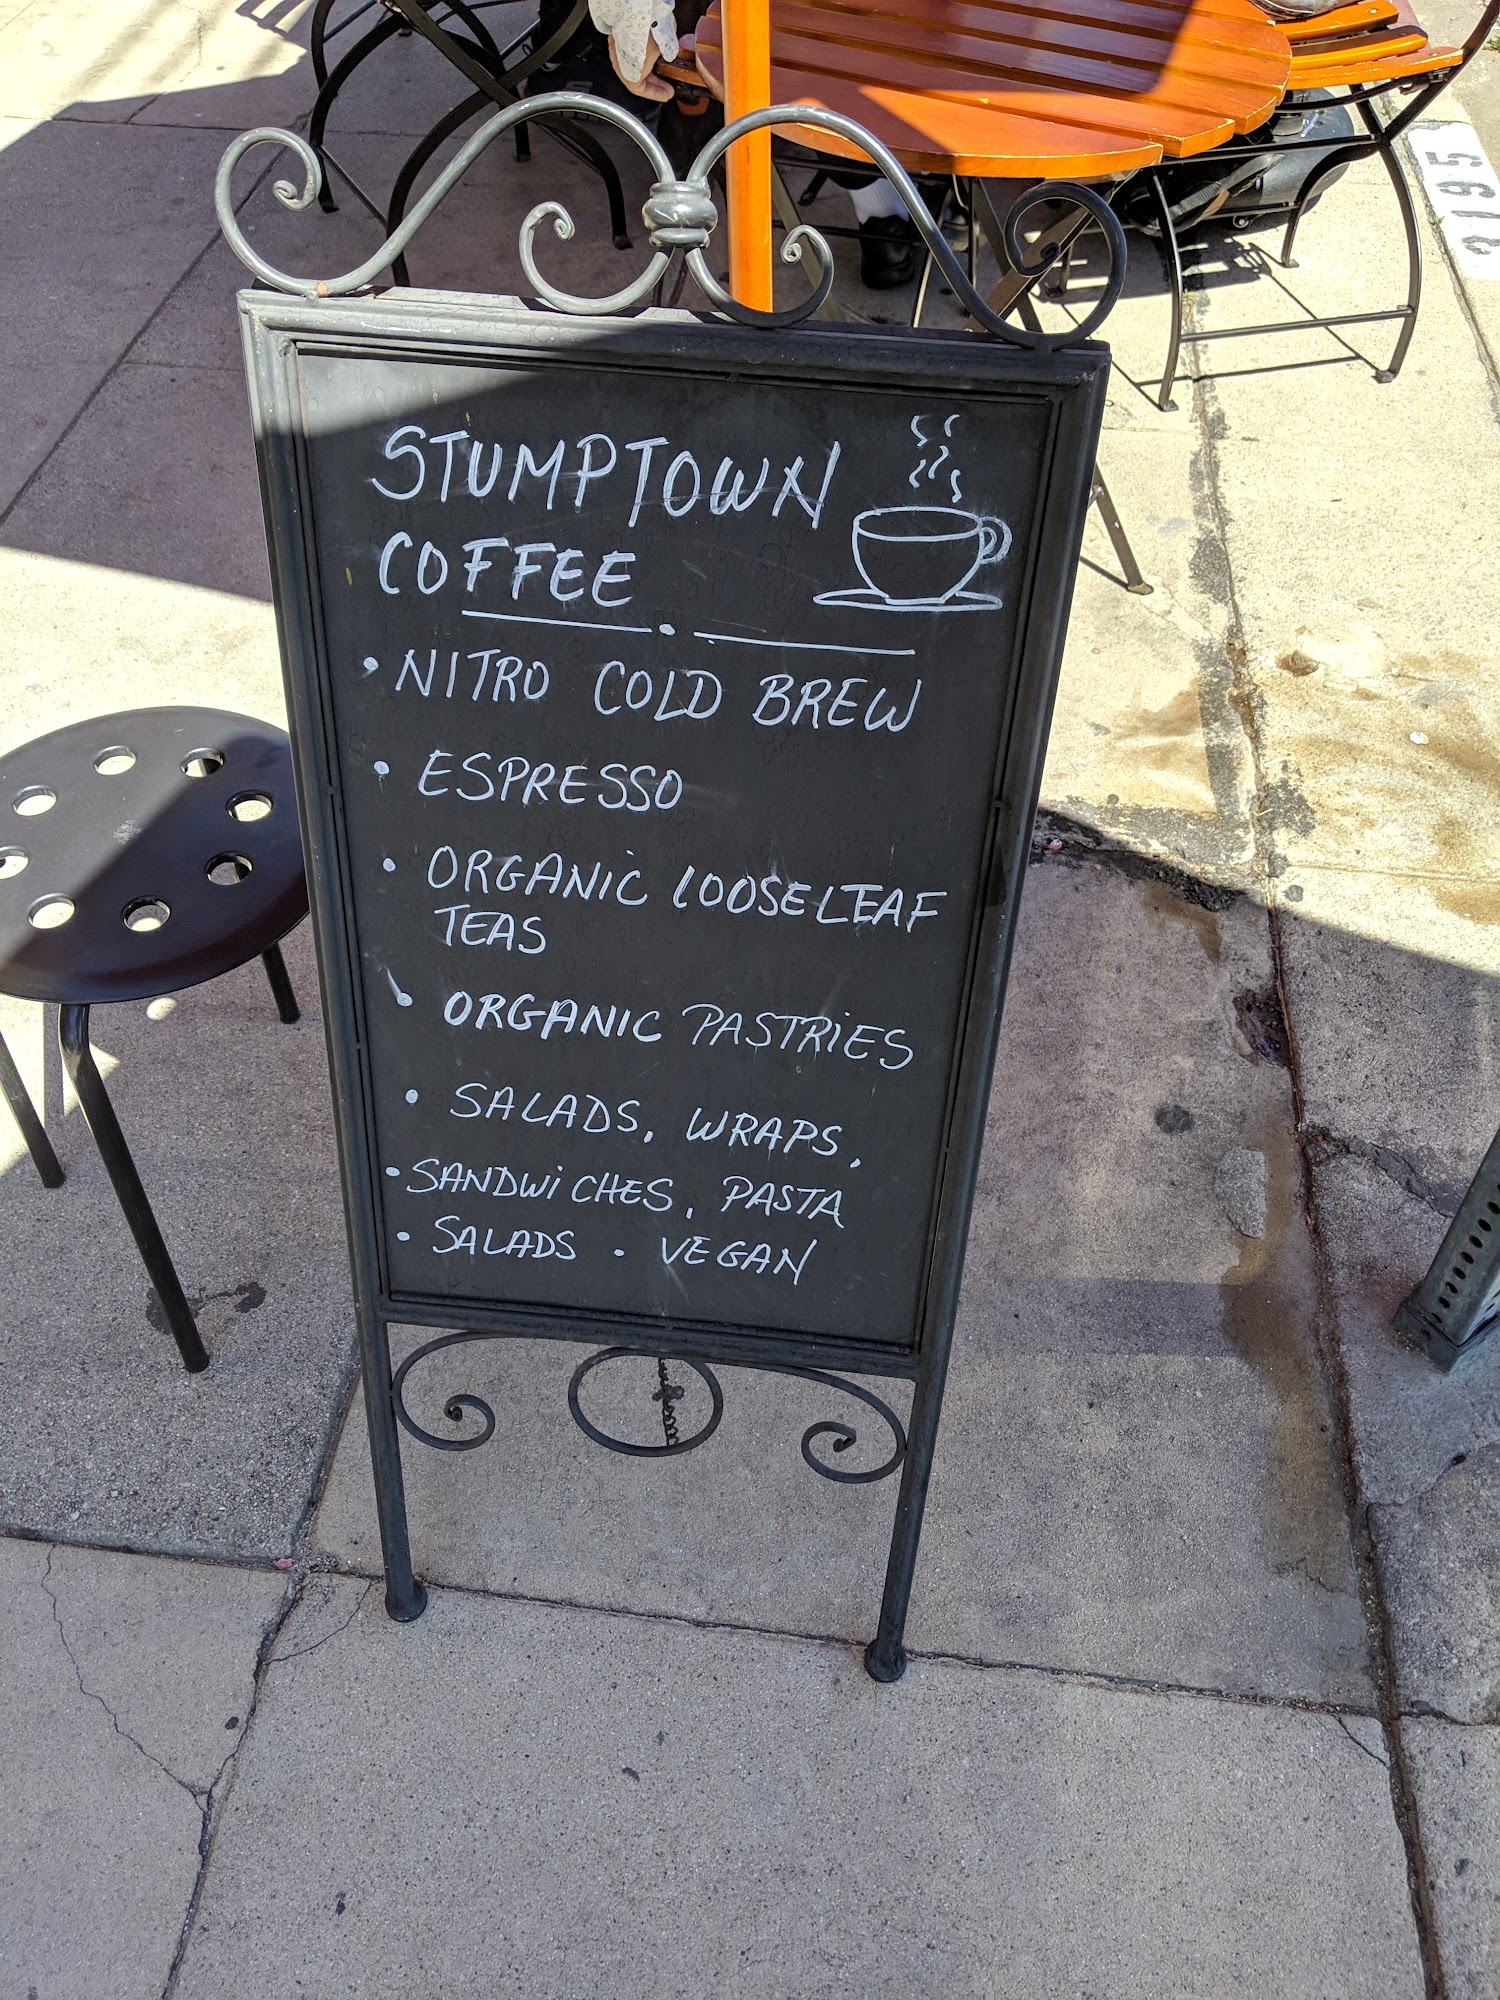 STUMPTOWN
COFFEE
• NITRO COLD BREW
• ESPRESSO
• ORGANIC LOOSELEAF
TEAS
• ORGANIC PASTRIES
• SALADS, WRAPS,
• SANDWICHES, PASTA
• SALADS • VEGAN
3195